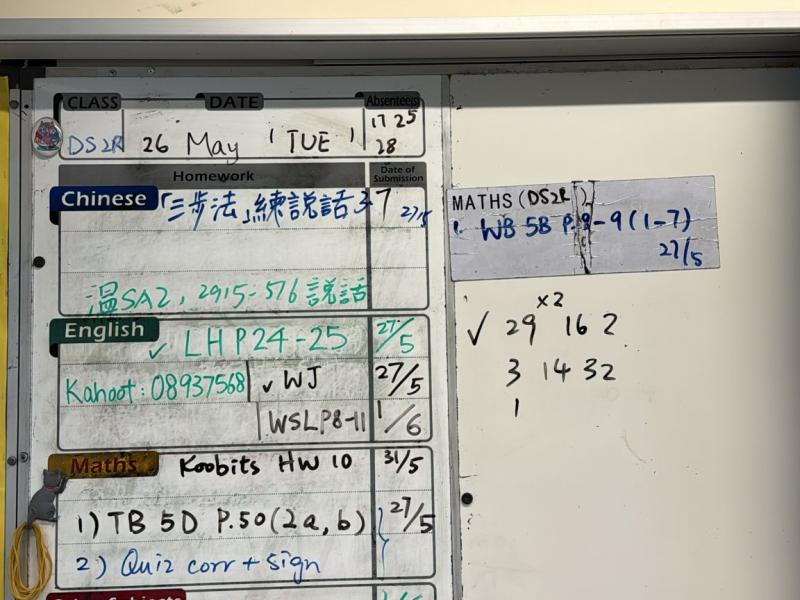 CLASS DATE Absentee(s)
DS2R 26 May (TUE) 17 25
28
Homework Date of Submission
Chinese 「三步法」練說話 3-7 27/5
溫SA2, 2915-576 說話
English ✓ LHP24-25 27/5
Kahoot: 08937568 ✓ WJ 27/5
WSLP8-11 1/6
Maths Koobits HW 10 31/5
1) TB 5D P.50 (2a, b) 27/5
2) Quiz corr + sign
MATHS (DS2R)
1. WB 5B P.8-9 (1-7)
27/5
x2
✓ 29 16 2
3 14 32
1